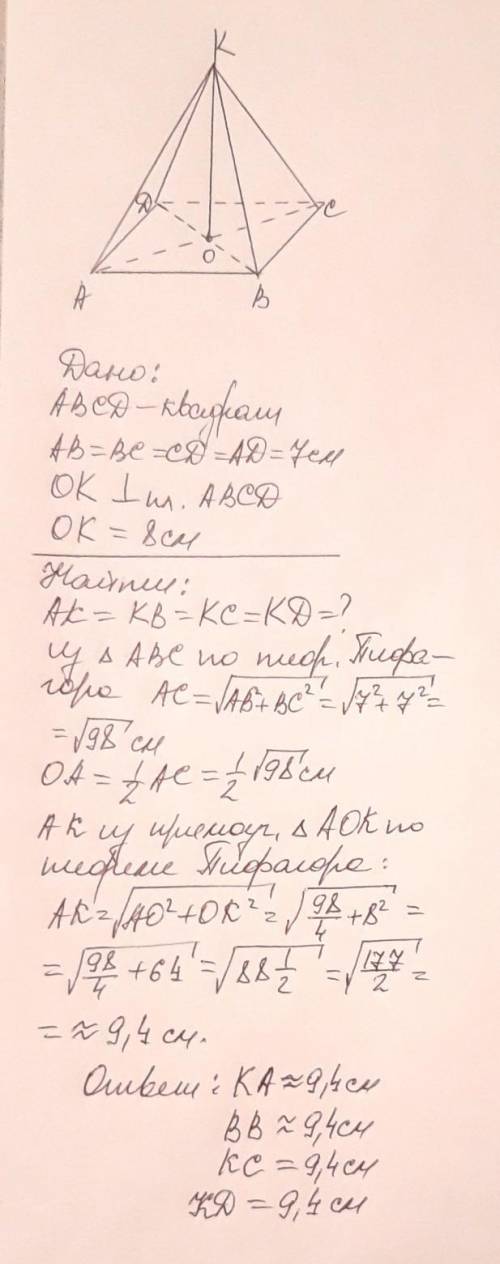 K
D
C
O
A
B
Дано:
ABCD – квадрат
AB = BC = CD = AD = 7см
OK ⊥ пл. ABCD
OK = 8см
Найти:
AK = KB = KC = KD = ?
из △ ABC по теор. Пифа-
гора AC = √AB²+BC² = √7²+7² =
= √98 см
OA = 1/2 AC = 1/2 √98 см
AK из прямоуг. △ AOK по
теореме Пифагора:
AK = √AO²+OK² = √98/4 + 8² =
= √98/4 + 64 = √88 1/2 = √177/2 =
= ≈ 9,4 см.
Ответ: KA ≈ 9,4см
BB ≈ 9,4см
KC = 9,4см
KD = 9,4 см